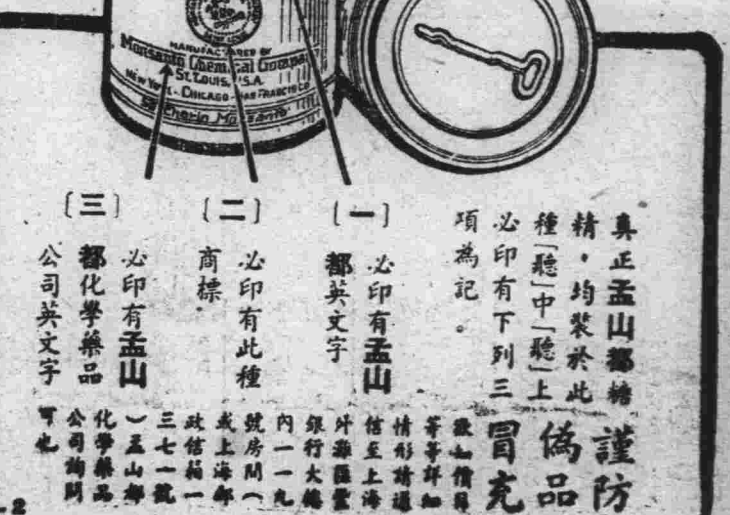 MANUFACTURED BY
Monsanto Chemical Company
ST. LOUIS, U.S.A.
NEW YORK - CHICAGO - SAN FRANCISCO
Saccharin Monsanto
真正孟山都糖
精，均裝於此
種「聽」中「聽」上
必印有下列三
項為記。
〔一〕
必印有孟山
都英文字
〔二〕
必印有此種
商標
〔三〕
必印有孟山
都化學藥品
公司英文字
謹防
偽品
冒充
欲知價目
等等詳細
情形請通
信至上海
外灘匯豐
銀行大樓
內一一九
號房間（
或上海郵
政信箱一
三七一號
）孟山都
化學藥品
公司詢問
可也
-2